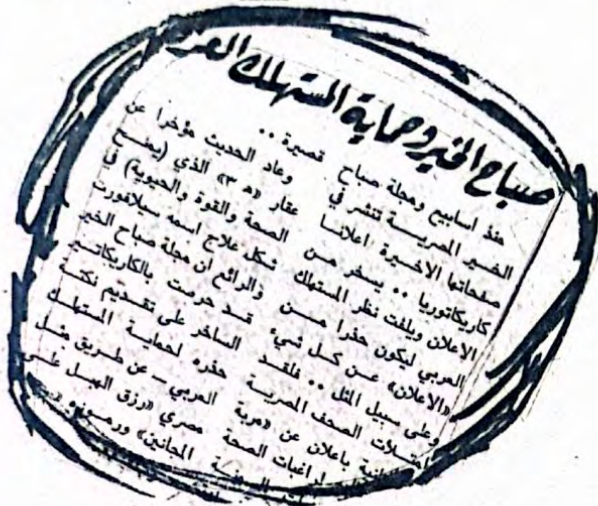 صباح الخير وحماية المستهلك العر
منذ اسابيع ومجلة صباح
الخير المصرية تنشر في
صفحاتها الاخيرة اعلانا
كاريكاتوريا .. يسخر من
الاعلان ويلفت نظر المستهلك
العربي ليكون حذرا من
«الاعلان» عن كل شيء
وعلى سبيل المثل .. فلقد
الصحف المصرية
باعلان عن «مربة
لراغبات الصحة
قصيرة ..
وعاد الحديث مؤخرا عن
عقار «ه ٣» الذي (يمنح
الصحة والقوة والحيوية) في
شكل علاج اسمه سيلافورت
والرائع ان مجلة صباح الخير
قد حرصت بالكاريكاتير
الساخر على تقديم نكتة
لحماية المستهلك
العربي – عن طريق مثل
مصري «رزق الهبل على
المجانين»